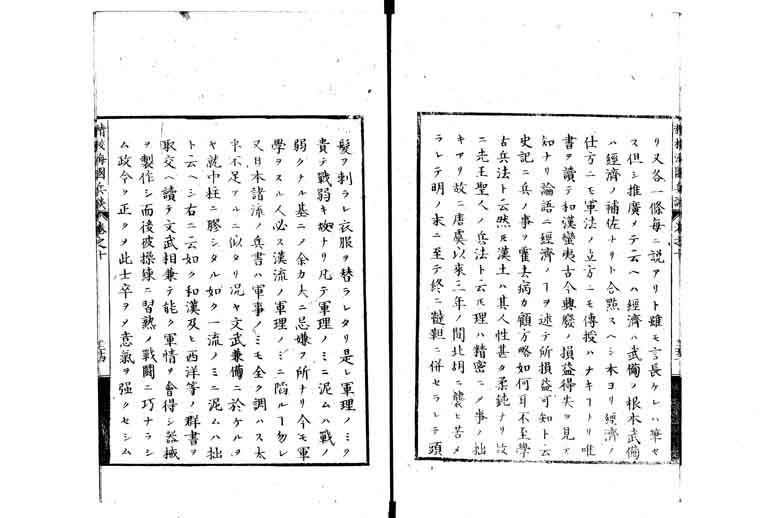 リ又各一條毎ニ説アリト雖モ言長ケレハ畢セ
ス但シ推廣メテ云ヘハ經濟ハ武備ノ根本武備
ハ經濟ノ補佐ナリト合點スヘシ木ヨリ經濟ノ
仕方ニモ軍法ノ立方ニモ傳授ハナキヿトリ唯
書ヲ讀テ和漢蠻夷古今興廢ノ損益得失ヲ見テ
知ナリ論語ニ經濟ノヿヲ述テ所損益可知ト云
史記ニ兵ノ事ヲ霍去病カ顧方略如何耳不至學
古兵法ト云然モ漢土ハ其人性甚タ柔鈍ナリ故
ニ先王聖人ノ兵法ト云モ理ハ精密ニノ事ノ拙
キアリ故ニ唐虞以來三年ノ間北胡ニ襲ヒ苦メ
ラレテ明ノ末ニ至テ終ニ韃靼ニ併セラレテ頭
精校海國兵談 卷之十
髮ヲ剃ラレ衣服ヲ替ラレタリ是レ軍理ノミク
責テ戰弱キ故ナリ凡テ軍理ノミニ泥ムハ戰ノ
弱クナル基ニノ余カ大ニ忌嫌フ所ナリ今モ軍
學ヲスル人必ス漢流ノ軍理ノミニ陷ルヿ勿レ
又日本諸流ノ兵書ハ軍事ノミモ全ク調ハス太
半不足アルニ似タリ况ヤ文武兼備ニ於ケルヲ
ヤ就中柱ニ膠シタル如ク一流ノミニ泥ムハ拙
ト云ヘシ右ニ云如ク和漢及ヒ西洋等ノ群書ヲ
取交ヘ讀テ文武相兼テ能ク軍情ヲ會得シ器械
ヲ製作シ而後彼操練ニ習熟ノ戰鬪ニ巧ナラシ
ム政令ヲ正クヲメ此士卒ヲメ意氣ヲ强クセシム
精校海國兵談 卷之十